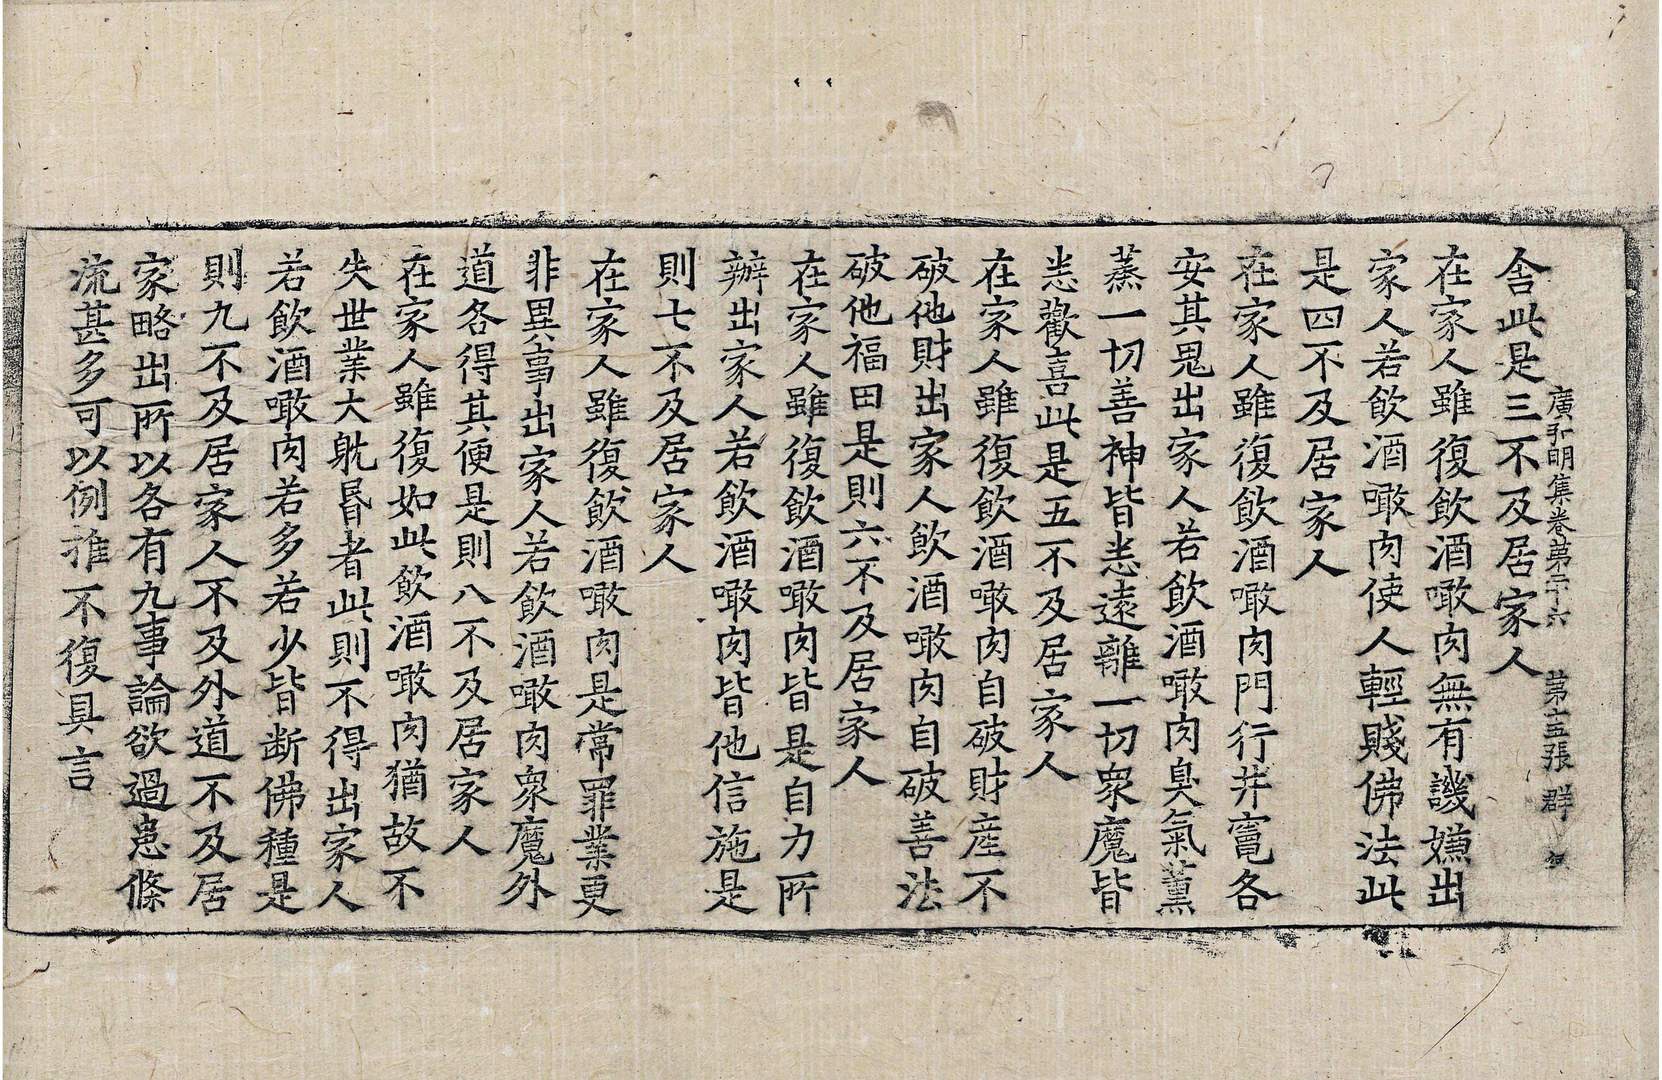 廣弘明集卷第二十六　第十五張　群
舎此是三不及居家人
在家人雖復飲酒噉肉無有譏嫌出
家人若飲酒噉肉使人輕賤佛法此
是四不及居家人
在家人雖復飲酒噉肉門行井竈各
安其鬼出家人若飲酒噉肉臭氣薰
蒸一切善神皆悉遠離一切衆魔皆
悉歡喜此是五不及居家人
在家人雖復飲酒噉肉自破財産不
破他財出家人飲酒噉肉自破善法
破他福田是則六不及居家人
在家人雖復飲酒噉肉皆是自力所
辦出家人若飲酒噉肉皆他信施是
則七不及居家人
在家人雖復飲酒噉肉是常罪業更
非異事出家人若飲酒噉肉衆魔外
道各得其便是則八不及居家人
在家人雖復如此飲酒噉肉猶故不
失世業大躭昬者此則不得出家人
若飲酒噉肉若多若少皆断佛種是
則九不及居家人不及外道不及居
家略出所以各有九事論欲過患條
流甚多可以例推不復具言